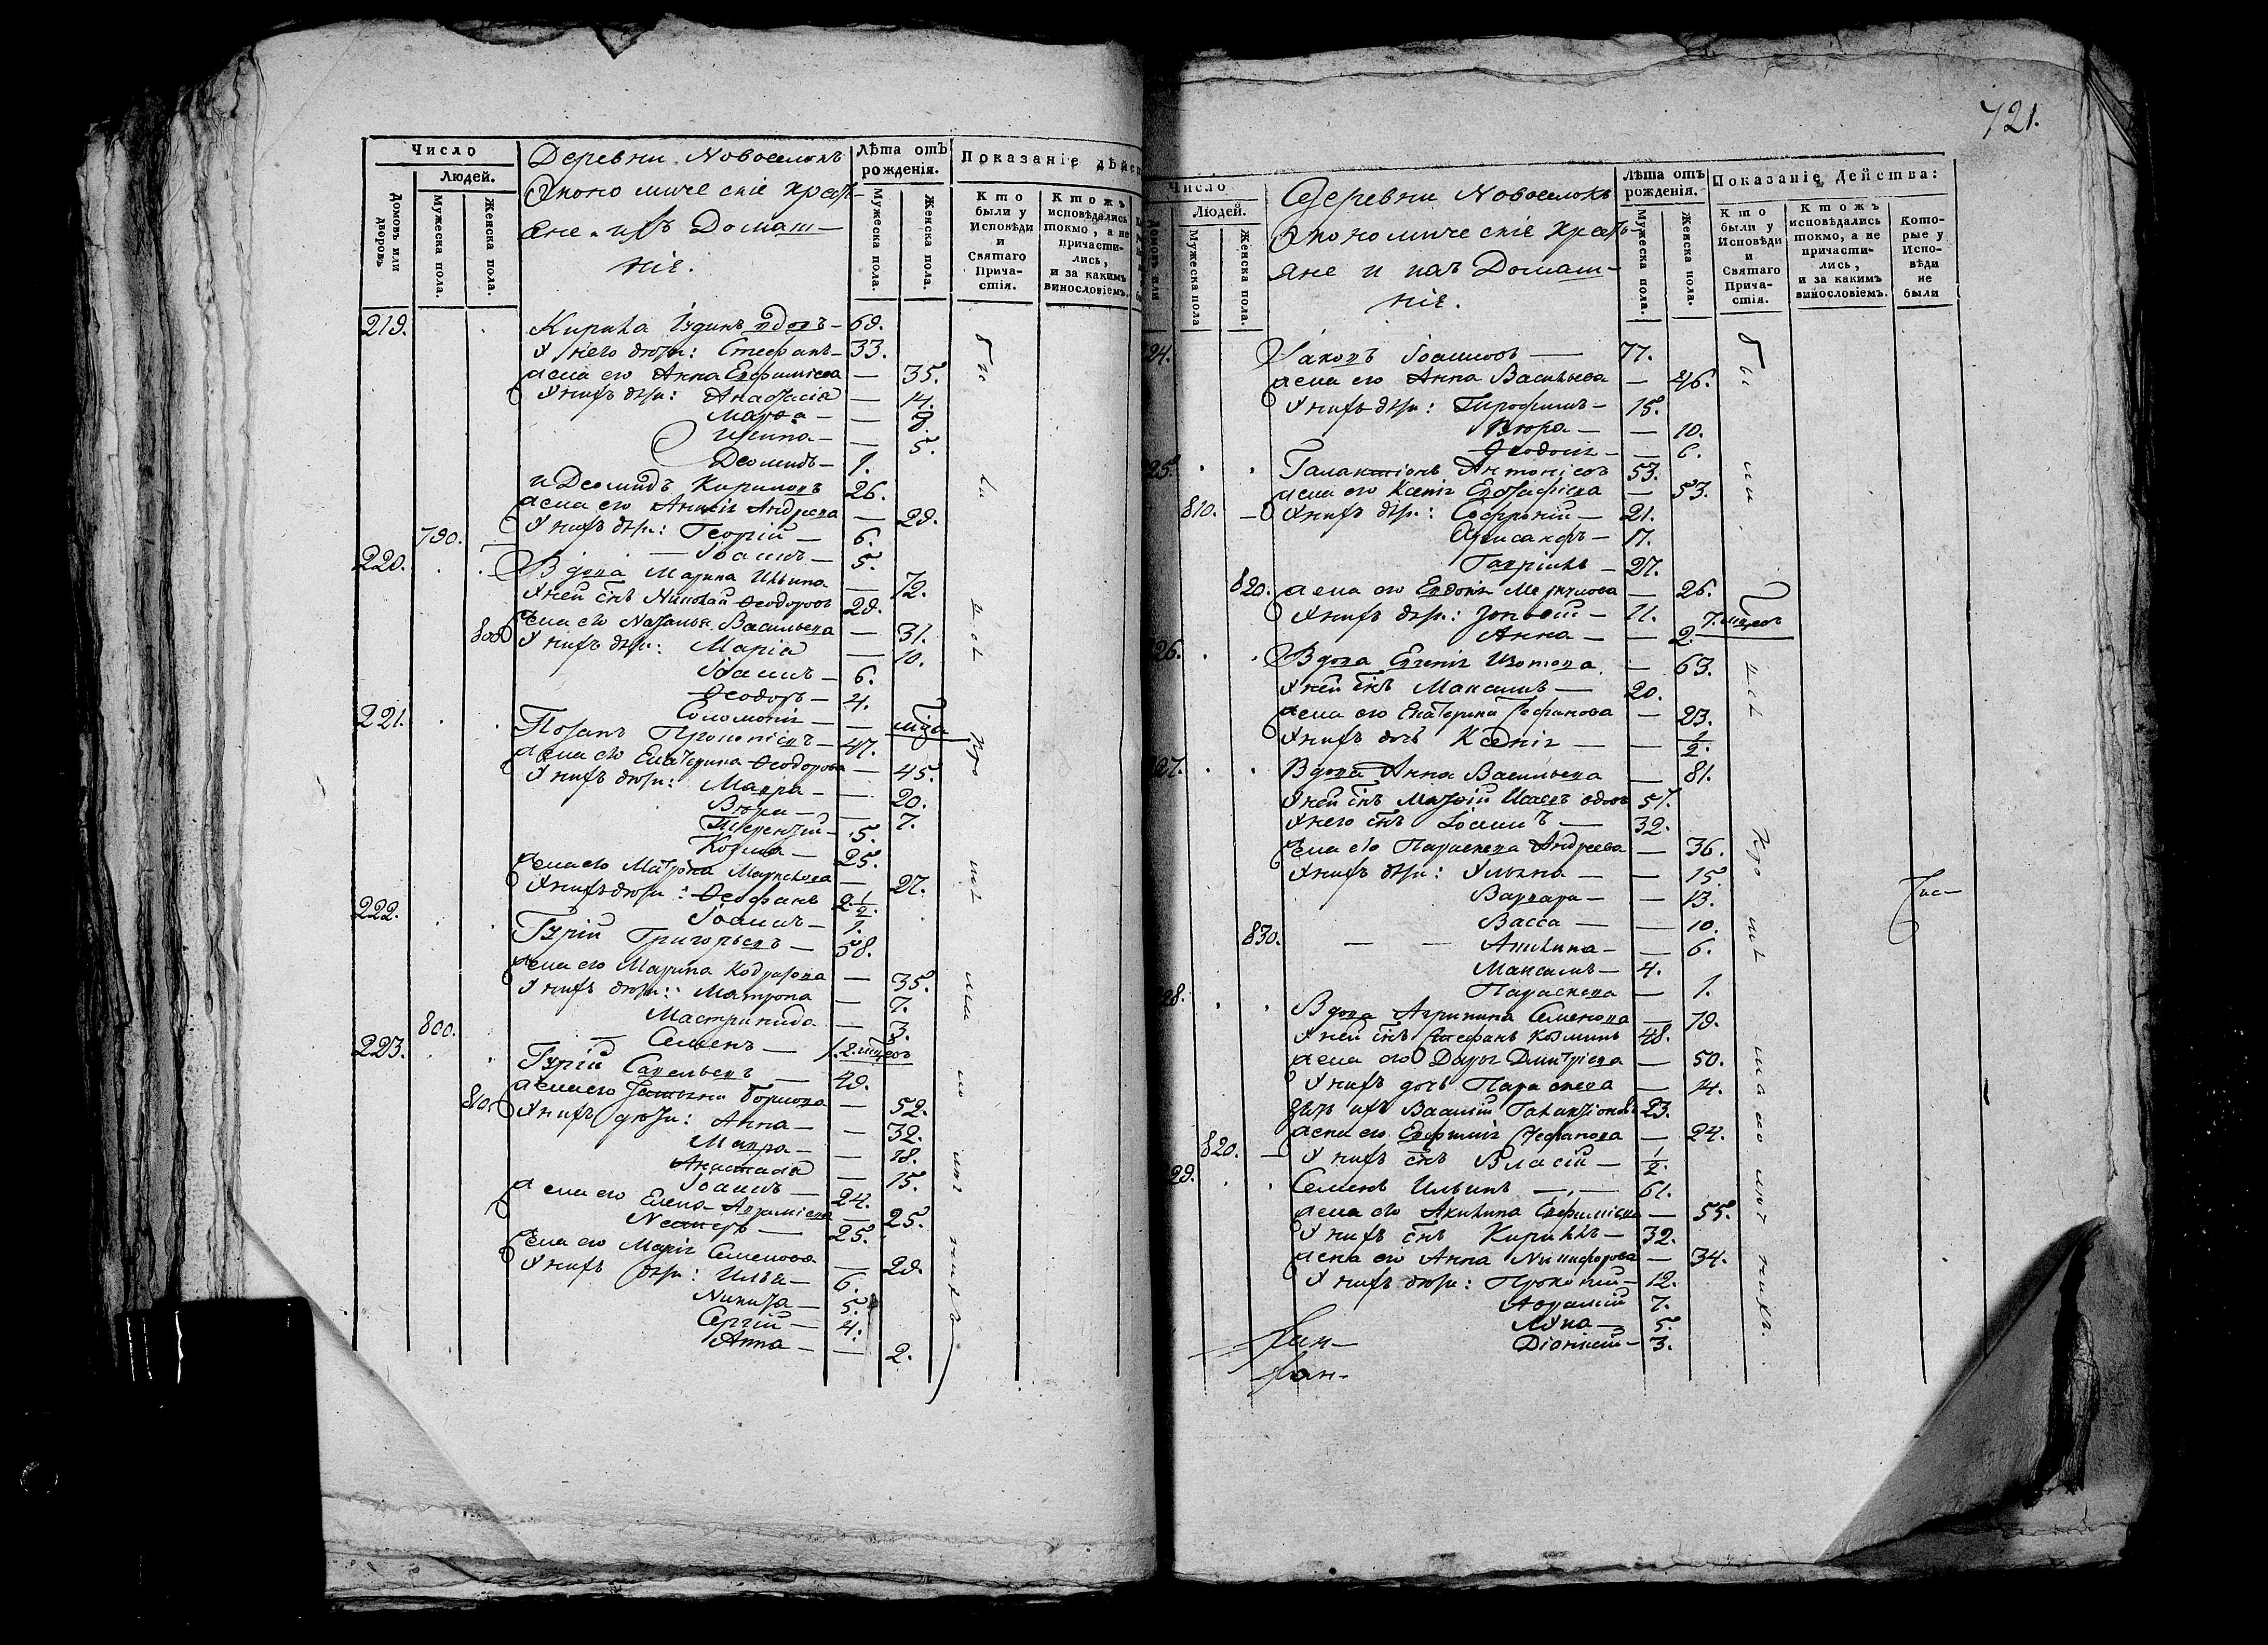 Число
Людей.
Домовъ или дворовъ
Мужеска пола.
Женска пола.
Деревни Новоселокъ
Экономическіе крестъ-
яне и ихъ Домаш-
ніе.
Лѣта отъ рожденія.
Мужеска пола.
Женска пола.
Показаніе дѣйс
Кто были у Исповѣди и Святаго Прича- стія.
Ктожъ исповѣдались токмо, а не причасти- лись, и за какимъ винословіемъ.
219. Кирила Іудинъ вдовъ - 69.
У него дѣти: Стефанъ - 33.
жена его Анна Евфиміева — 35.
У нихъ дѣти: Анастасіа — 14.
Марѳа — 9.
— 5.
Деомидъ — 1.
и Деомидъ Кириловъ 26.
жена его Андреева — 29.
790. У нихъ дѣти: Георгій — 6.
Іоаннъ — 5.
220. Вдова Марина Ильина — 72.
У ней снъ Николай Ѳеодоровъ 29.
жена его Наталья Васильева — 31.
800 У нихъ дѣти: Маріа — 10.
Іоаннъ — 6.
Ѳеодоръ — 4.
Соломоніа —
221. Прокопіевъ — 47.
жена его Екатерина Ѳеодорова — 45.
У нихъ дѣти: Мавра — 20.
— 7.
Терентій — 5.
Козма — 25.
жена его Матрона Маркелова — 27.
У нихъ дѣти: Ѳеофанъ 2 1/2.
Іоаннъ — 1.
222. Гурій Григорьевъ — 58.
жена его Марина — 35.
У нихъ дѣти: Матрона — 7.
— 3.
800. Семенъ —
223. Гурій Савельевъ — 49.
жена его — 52.
810 У нихъ дѣти: Анна — 32.
Мавра — 18.
Анастасіа — 15.
Іоаннъ — 24.
жена его Елена Аврамiева — 25.
Несторъ — 25.
жена его Маріа Семенова — 29.
У нихъ дѣти: Илья — 6.
Никита — 5.
Сергій — 4.
Анна — 2.
721.
Число
Людей.
Мужеска пола
Женска пола.
Деревни Новоселокъ
Экономическіе кресть-
яне и ихъ Домаш-
ніе.
Лѣта отъ рожденія.
Мужеска пола.
Женска пола.
Показаніе Дѣйства:
Кто были у Исповѣди и Святаго Прича- стія.
Ктожъ исповѣдались токмо, а не причасти- лись, и за какимъ винословіемъ.
Кото- рые у Испо- вѣди не были
24. Іаковъ Іоанновъ — 77.
жена его Анна Васильева — 46.
У нихъ дѣти: Трофимъ — 15.
— 10.
Ѳеодосіа — 6.
25. Галактіонъ Антоніевъ 53.
жена его Ксеніа — 53.
810. У нихъ дѣти: Софроній — 21.
Александръ — 17.
Гавріилъ — 27.
820. жена его Евдокіа Меркулова — 26.
У нихъ дѣти: — 11.
Анна — 2.
26. Вдова Евгеніа Изотова — 63.
У ней снъ Максимъ — 20.
жена его Екатерина Стефанова — 23.
У нихъ дочь Ксеніа — 1/2.
27. Вдова Анна Васильева — 81.
У ней снъ Матѳій вдовъ 57.
У него снъ Іоаннъ — 32.
жена его Параскева Андреева — 36.
У нихъ дѣти: Ульяна — 15.
Варвара — 13.
Васса — 10.
830. Акилина — 6.
Максимъ — 4.
Параскева — 1.
28. Вдова Агрипина Семенова — 79.
У ней снъ Стефанъ Козминъ 48.
жена его Дарьа Дмитріева — 50.
У нихъ дочь Параскева — 14.
зять ихъ Василій Галактіоновъ 23.
жена его Евфиміа Стефанова — 24.
820. У нихъ снъ Власій — 1/2.
29. Семенъ Ильинъ — 61.
жена его Акилина Евфиміева — 55.
У нихъ снъ Кирилъ — 32.
жена его Анна Никифорова — 34.
У нихъ дѣти: Прокопій — 12.
Аврамій 7.
Лука — 5.
Діонисій — 3.